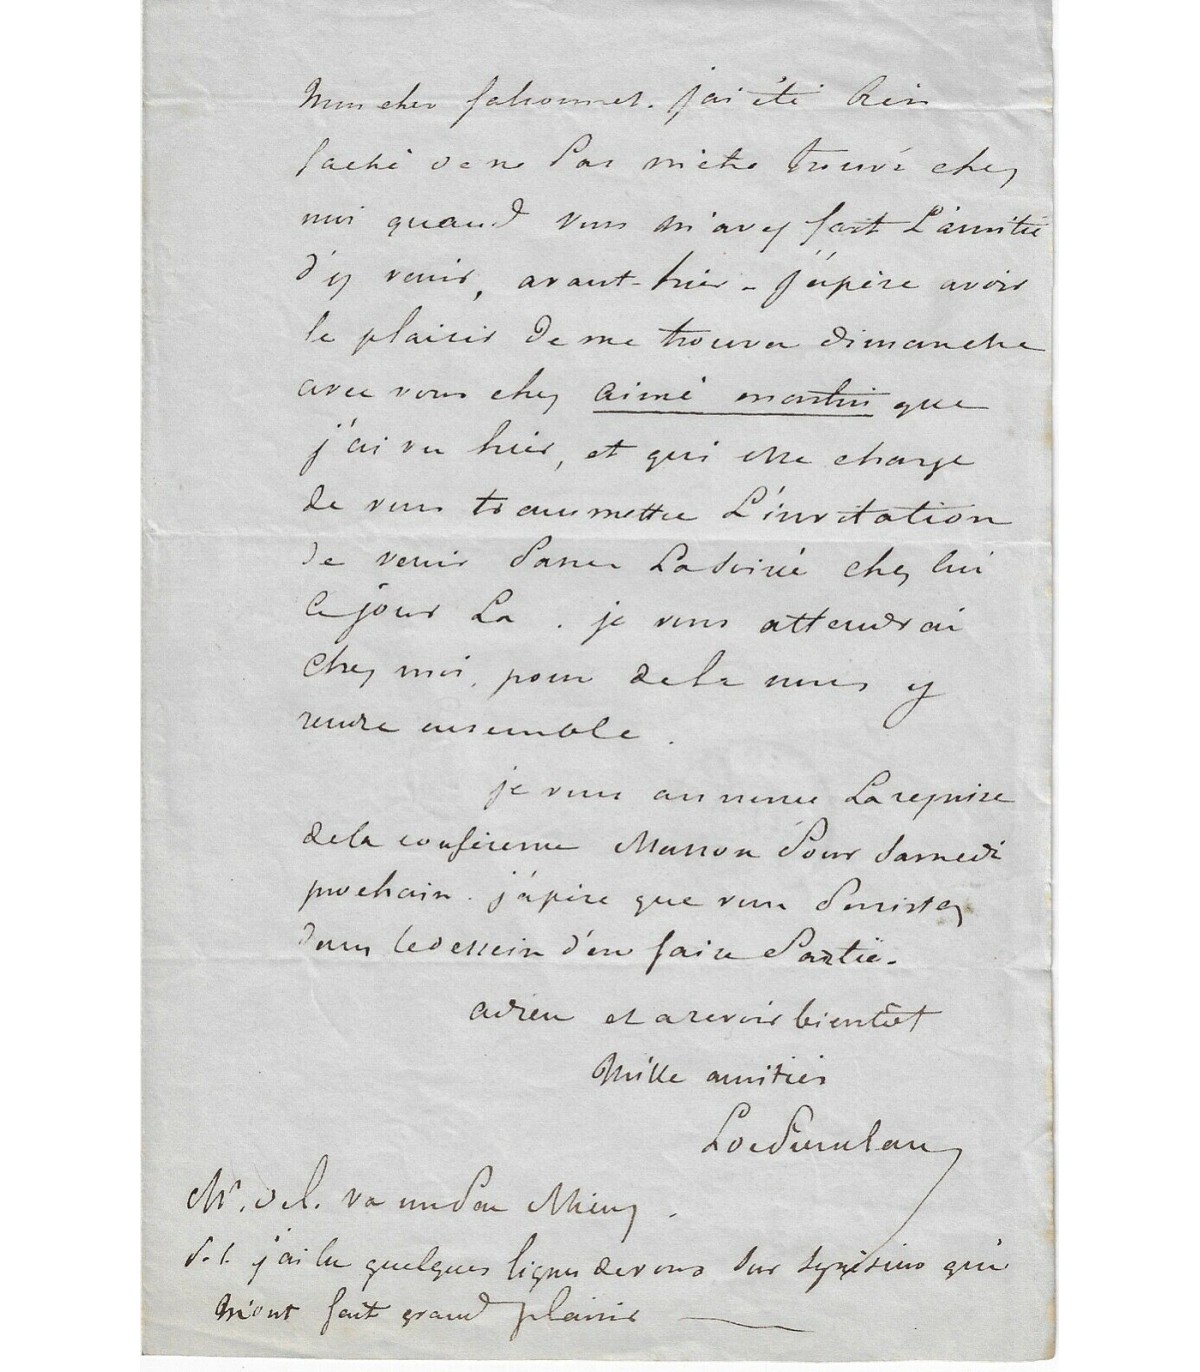 Mon cher j'ai été bien
faché de ne pas m'être trouvé chez
moi quand vous m'avez fait L'amitié
d'y venir, avant-hier - j'espère avoir
le plaisir de me trouver dimanche
avec vous chez aimé martin que
j'ai vu hier, et qui me charge
de vous transmettre L'invitation
de venir passer La soirée chez lui
ce jour La . je vous attendrai
chez moi, pour de la nous y
rendre ensemble .
je vous annonce La reprise
de la conférence Masson pour samedi
prochain . j'espère que vous persistez
dans le dessein d'en faire Partie.
adieu et a revoir bientôt
Mille amitiés
Mr. de L. va un peu Mieux .
P.S. j'ai lu quelques lignes de vous sur qui
m'ont fait grand plaisir